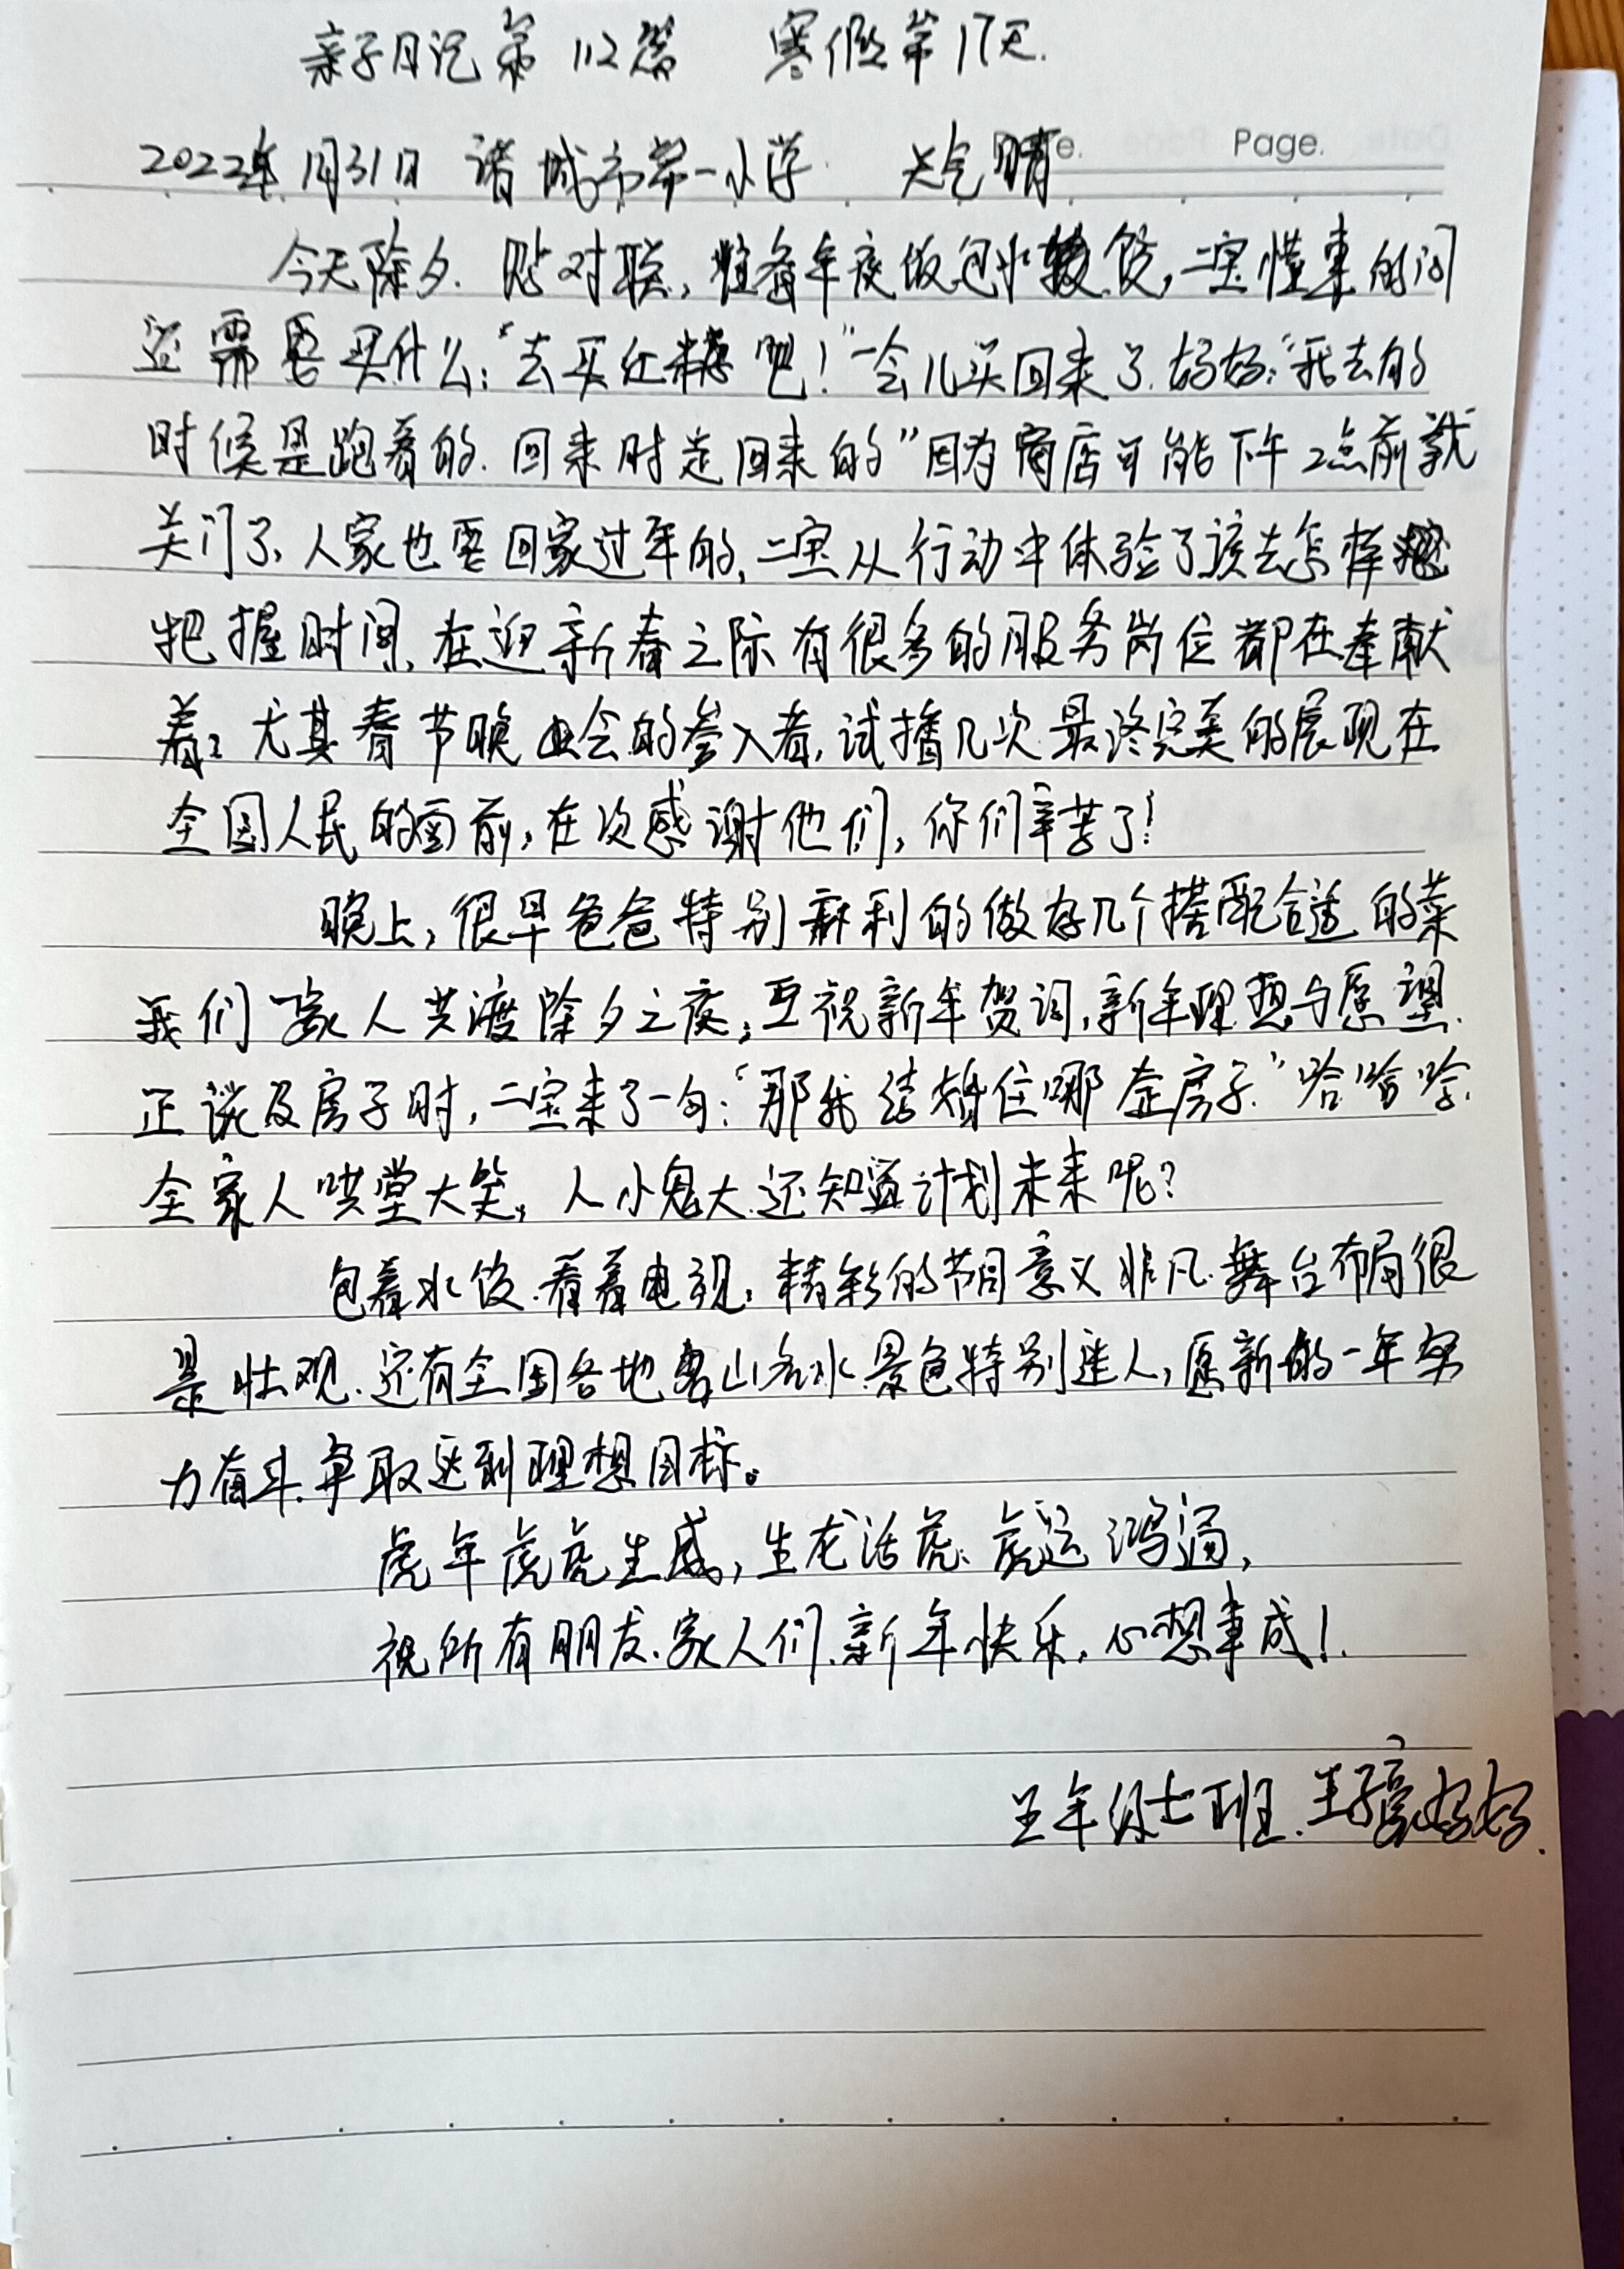 亲子日记第112篇 寒假第17天.
2022年1月31日 诸城市第一小学 天气晴
Page.
今天除夕.贴对联,准备年夜饭包水饺,二宝懂事的问
还需要买什么:“去买红糖吧!”一会儿买回来了.妈妈:“我去的
时候是跑着的.回来时走回来的”因为商店可能下午2点前就
关门了、人家也要回家过年的,二宝从行动中体验了该去怎样
把握时间,在迎新春之际有很多的服务岗位都在奉献
着;尤其春节晚会的参入者,试播几次最终完美的展现在
全国人民的面前,在次感谢他们,你们辛苦了!
晚上,很早爸爸特别麻利的做好几个搭配合适的菜
我们一家人共渡除夕之夜;互祝新年贺词,新年理想与愿望.
正谈及房子时,二宝来了一句:“那我结婚住哪套房子.”哈哈哈.
全家人哄堂大笑,人小鬼大还知道计划未来呢?
包着水饺.看着电视;精彩的节目意义非凡.舞台布局很
是壮观.还有全国各地名山名水景色特别迷人,愿新的一年努
力奋斗.争取达到理想目标。
虎年虎虎生威,生龙活虎.虎运鸿通,
祝所有朋友.家人们.新年快乐,心想事成!
五年级七班.王子豪妈妈.